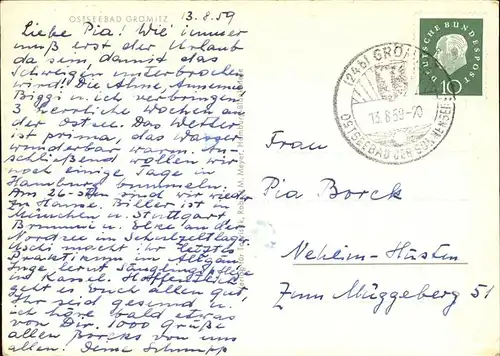 OSTSEEBAD GRÖMITZ
13.8.59
Liebe Pia! Wie immer
muß erst der Urlaub
da sein, damit das
Schweigen unterbrochen
wird! Die Ahne,
Biggi u. ich verbringen
3 herrliche Wochen an
der Ostsee. Das Wetter
ist prima, das Wasser
wunderbar warm. An-
schließend wollen wir
noch einige Tage in
Hamburg bummeln.
Am 26-sten sind wir wieder
zu Hause. Biller ist in
München u. Stuttgart
Brummi u. Elke an der
Nordsee im Schulzeltlager
Uschi macht ihr letztes
Praktikum im Allgäu
Inge lernt Säuglingspflege
in Kassel. Hoffentlich
geht es Euch allen gut,
Ihr seid gesund u.
ich höre bald etwas
von Dir. 1000 Grüße
allen Borcks von uns
allen. Deine Schnupp
(24b) GRÖMITZ
13.8.59-20
OSTSEEBAD DER SONNENSEITE
DEUTSCHE BUNDESPOST
10
Frau
Pia Borck
Neheim-Hüsten
Zum Müggeberg 51